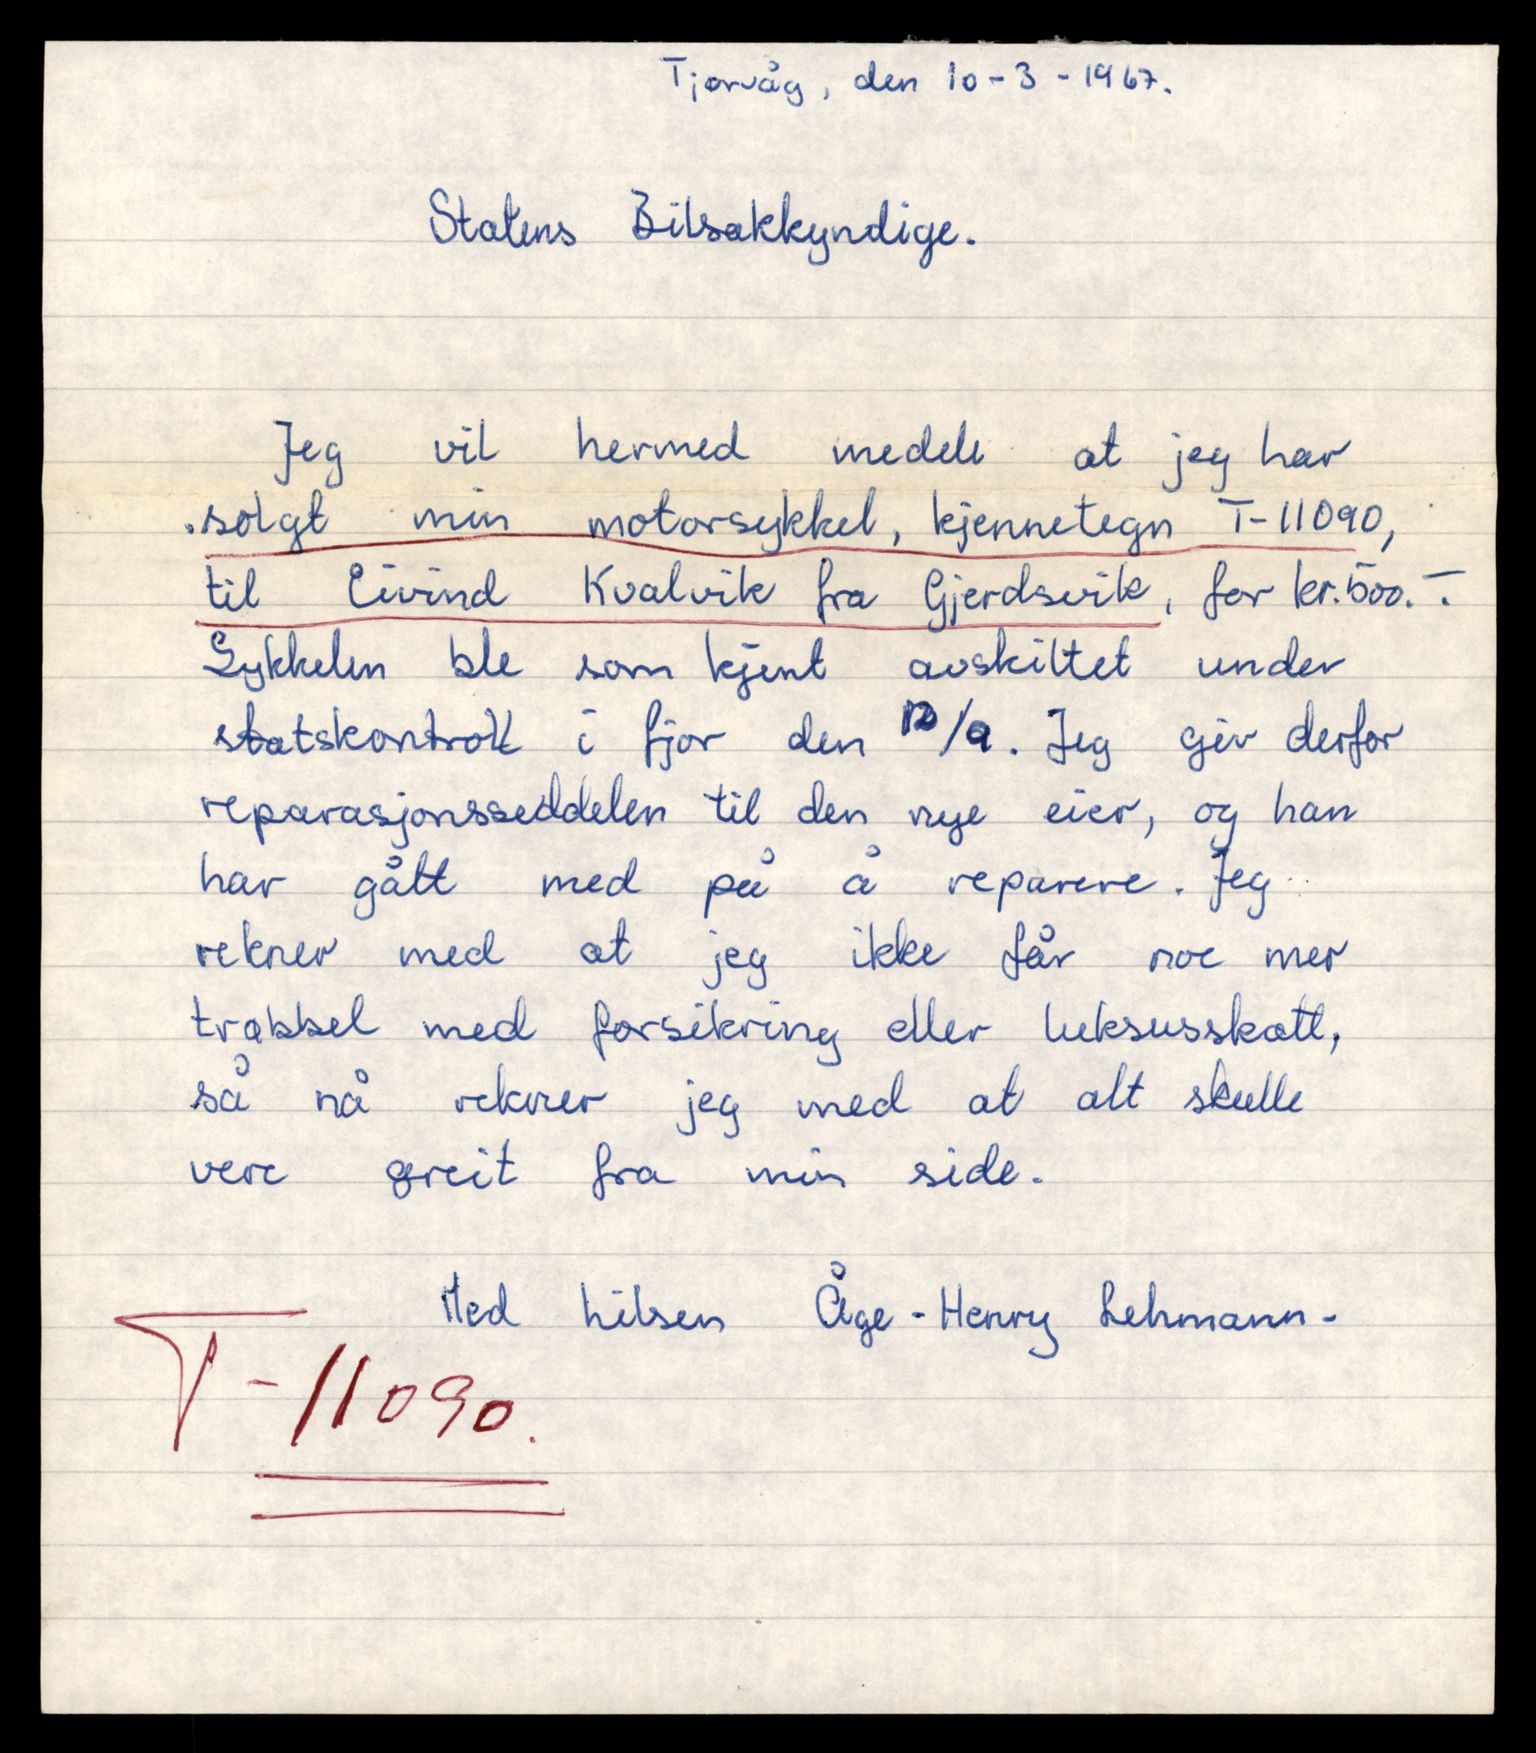 Tjørvåg, den 10-3-1967.
Statens Bilsakkyndige.
Jeg vil hermed medele at jeg har
solgt min motorsykkel, kjennetegn T-11090,
til Eivind Kvalvik fra Gjerdsvik, for kr. 500.-.
Sykkelen ble som kjent avskiltet under
statskontroll i fjor den /9. Jeg gir derfor
reparasjonsseddelen til den nye eier, og han
har gått med på å reparere. Jeg
rekner med at jeg ikke får noe mer
trøbbel med forsikring eller luksusskatt,
så nå rekner jeg med at alt skulle
vere greit fra min side.
Med hilsen Åge-Henry Lehmann-
T-11090.